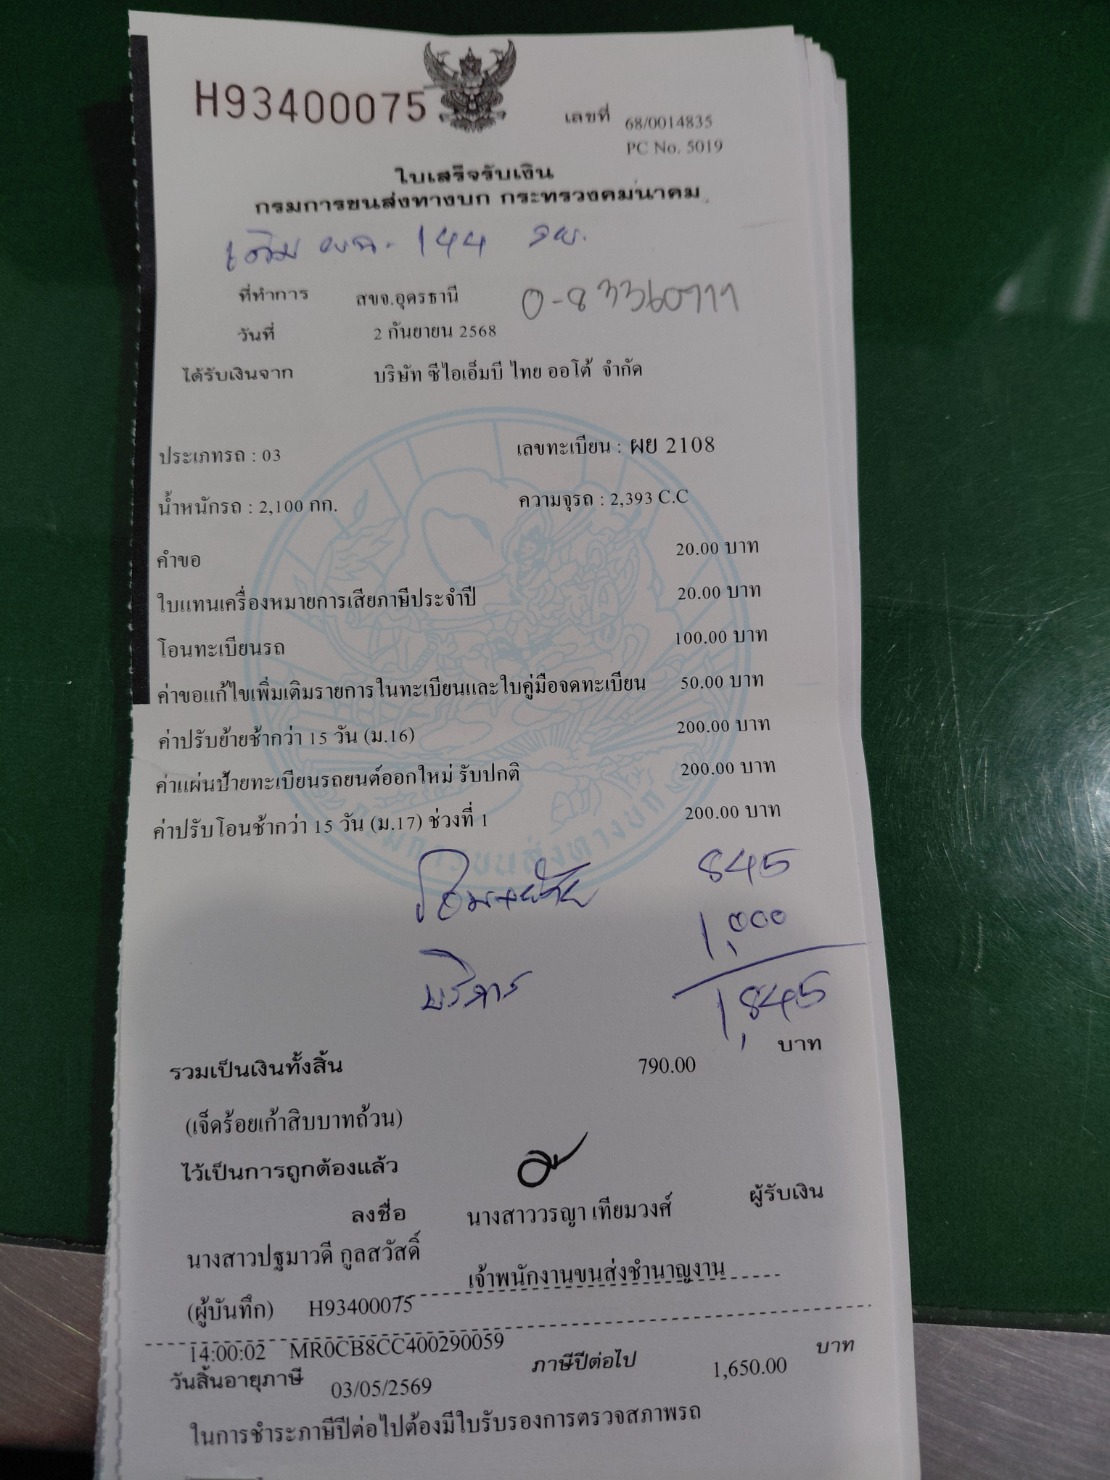 H93400075
เลขที่ 68/0014835
PC No. 5019
ใบเสร็จรับเงิน
กรมการขนส่งทางบก กระทรวงคมนาคม
เดิม 144
ที่ทำการ สขจ.อุดรธานี
วันที่ 2 กันยายน 2568
ได้รับเงินจาก บริษัท ซีไอเอ็มบี ไทย ออโต้ จำกัด
ประเภทรถ : 03 เลขทะเบียน : ผย 2108
น้ำหนักรถ : 2,100 กก. ความจุรถ : 2,393 C.C
คำขอ 20.00 บาท
ใบแทนเครื่องหมายการเสียภาษีประจำปี 20.00 บาท
โอนทะเบียนรถ 100.00 บาท
ค่าขอแก้ไขเพิ่มเติมรายการในทะเบียนและใบคู่มือจดทะเบียน 50.00 บาท
ค่าปรับย้ายช้ากว่า 15 วัน (ม.16) 200.00 บาท
ค่าแผ่นป้ายทะเบียนรถยนต์ออกใหม่ รับปกติ 200.00 บาท
ค่าปรับโอนช้ากว่า 15 วัน (ม.17) ช่วงที่ 1 200.00 บาท
กรมการขนส่งทางบก
845
1,000
บริการ 1,845
รวมเป็นเงินทั้งสิ้น 790.00 บาท
(เจ็ดร้อยเก้าสิบบาทถ้วน)
ไว้เป็นการถูกต้องแล้ว
ลงชื่อ นางสาววรญา เทียมวงศ์ ผู้รับเงิน
นางสาวปฐมาวดี กูลสวัสดิ์
เจ้าพนักงานขนส่งชำนาญงาน
(ผู้บันทึก) H93400075
14:00:02 MR0CB8CC400290059
วันสิ้นอายุภาษี 03/05/2569 ภาษีปีต่อไป 1,650.00 บาท
ในการชำระภาษีปีต่อไปต้องมีใบรับรองการตรวจสภาพรถ